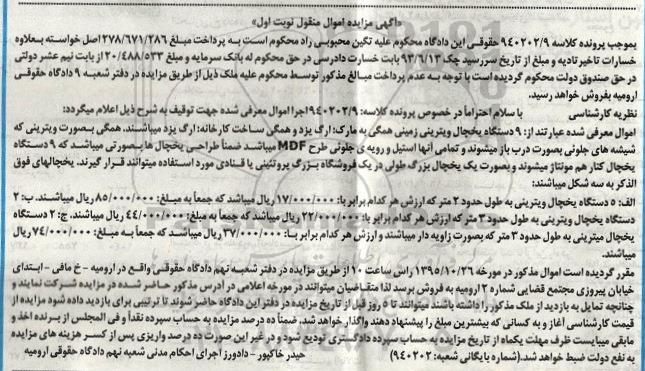 «آگهی مزایده اموال منقول نوبت اول»
بموجب پرونده کلاسه ۹۴۰۲۰۲/۹ حقوقی این دادگاه محکوم علیه نگین محبوبی راد محکوم است به پرداخت مبلغ ۲۷۸/۶۷۱/۲۸۶ اصل خواسته بعلاوه
خسارات تاخیر تادیه و مبلغ از تاریخ سررسید چک ۹۲/۶/۱۳ بابت خسارت دادرسی در حق محکوم له بانک سرمایه و مبلغ ۲۰/۴۸۸/۵۳۳ از بابت نیم عشر دولتی
در حق صندوق دولت محکوم گردیده است با توجه به عدم پرداخت مبالغ مذکور توسط محکوم علیه ملک ذیل از طریق مزایده در دفتر شعبه ۹ دادگاه حقوقی
ارومیه بفروش خواهد رسید.
نظریه کارشناسی با سلام احتراماً در خصوص پرونده کلاسه: ۹۴۰۲۰۲/۹ اجرا اموال معرفی شده جهت توقیف به شرح ذیل اعلام میگردد:
اموال معرفی شده عبارتند از: ۹ دستگاه یخچال ویترینی زمینی همگی به مارک: ارگ یزد و همگی ساخت کارخانه: ارگ یزد میباشند. همگی بصورت ویترینی که
شیشه های جلوئی بصورت درب باز میشوند و تمامی آنها استیل و رویه ی جلوئی طرح MDF میباشد ضمناً طراحی یخچال ها بصورتی میباشد که ۹ دستگاه
یخچال کنار هم مونتاژ میشوند و بصورت یک یخچال بزرگ طولی در یک فروشگاه بزرگ پروتئینی یا قنادی مورد استفاده میتوانند قرار گیرند. یخچالهای فوق
الذکر به سه شکل میباشند:
الف: ۵ دستگاه یخچال ویترینی به طول حدود ۲ متر که ارزش هر کدام برابر با: ۱۷/۰۰۰/۰۰۰ ریال میباشد که جمعاً به مبلغ: ۸۵/۰۰۰/۰۰۰ ریال میباشند. ب: ۲
دستگاه یخچال ویترینی به طول حدود ۳ متر که ارزش هر کدام برابر با: ۲۲/۰۰۰/۰۰۰ ریال میباشد که جمعاً به مبلغ: ۴۴/۰۰۰/۰۰۰ ریال میباشند. ج: ۲ دستگاه
یخچال میترینی به طول حدود ۳ متر که بصورت زاویه دار میباشند و ارزش هر کدام برابر با: ۳۷/۰۰۰/۰۰۰ ریال میباشد که جمعاً به مبلغ: ۷۴/۰۰۰/۰۰۰ ریال
میباشند.
مقرر گردیده است اموال مذکور در مورخه ۱۳۹۵/۱۰/۲۶ راس ساعت ۱۰ از طریق مزایده در دفتر شعبه نهم دادگاه حقوقی واقع در ارومیه - خ مافی - ابتدای
خیابان پیروزی مجتمع قضایی شماره ۲ ارومیه به فروش برسد لذا متقاضیان میتوانند در مورخه اعلامی در آدرس مذکور حاضر شده در مزایده شرکت نمایند و
چنانچه تمایل به بازدید از ملک مذکور را داشته باشند میتوانند تا ۵ روز قبل از تاریخ مزایده در دفتر این دادگاه حاضر شوند تا ترتیبی برای بازدید داده شود مزایده از
قیمت کارشناسی آغاز و به کسانی که بیشترین مبلغ را پیشنهاد دهند واگذار خواهد شد. ضمناً ده درصد مزایده به حساب سپرده نقداً و فی المجلس از برنده اخذ و
مابقی میبایست ظرف مهلت یکماه از تاریخ مزایده به حساب سپرده دادگستری تودیع شود و در غیر این صورت ده درصد واریزی پس از کسر هزینه های مزایده
به نفع دولت ضبط خواهد شد. (شماره بایگانی شعبه: ۹۴۰۲۰۲) حیدر خاکپور - دادورز اجرای احکام مدنی شعبه نهم دادگاه حقوقی ارومیه